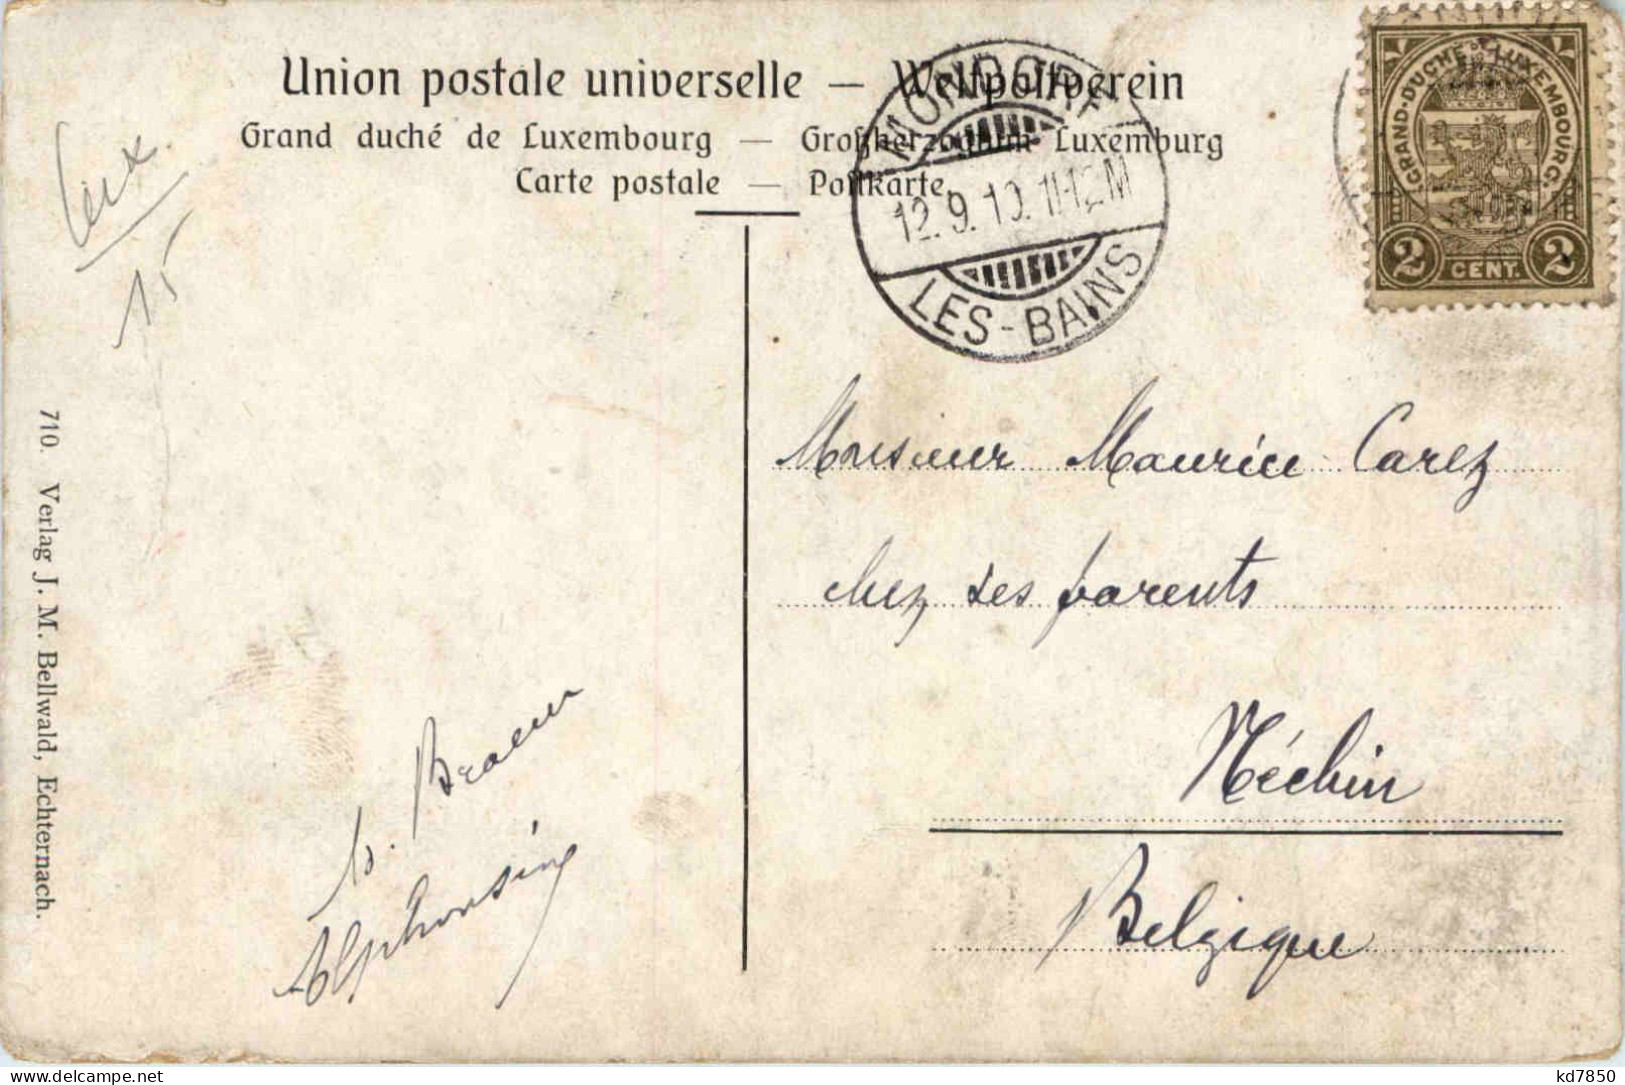 Union postale universelle — Weltpostverein
Grand duché de Luxembourg — Großherzogtum Luxemburg
Carte postale — Postkarte
MONDORF
12.9.10. 11-12M
LES-BAINS
GRAND-DUCHÉ DE LUXEMBOURG.
2 CENT. 2
Lux
15
710. Verlag J. M. Bellwald, Echternach.
Monsieur Maurice Carez
chez ses parents
Néchin
Belgique
Alphonsine
kd7850